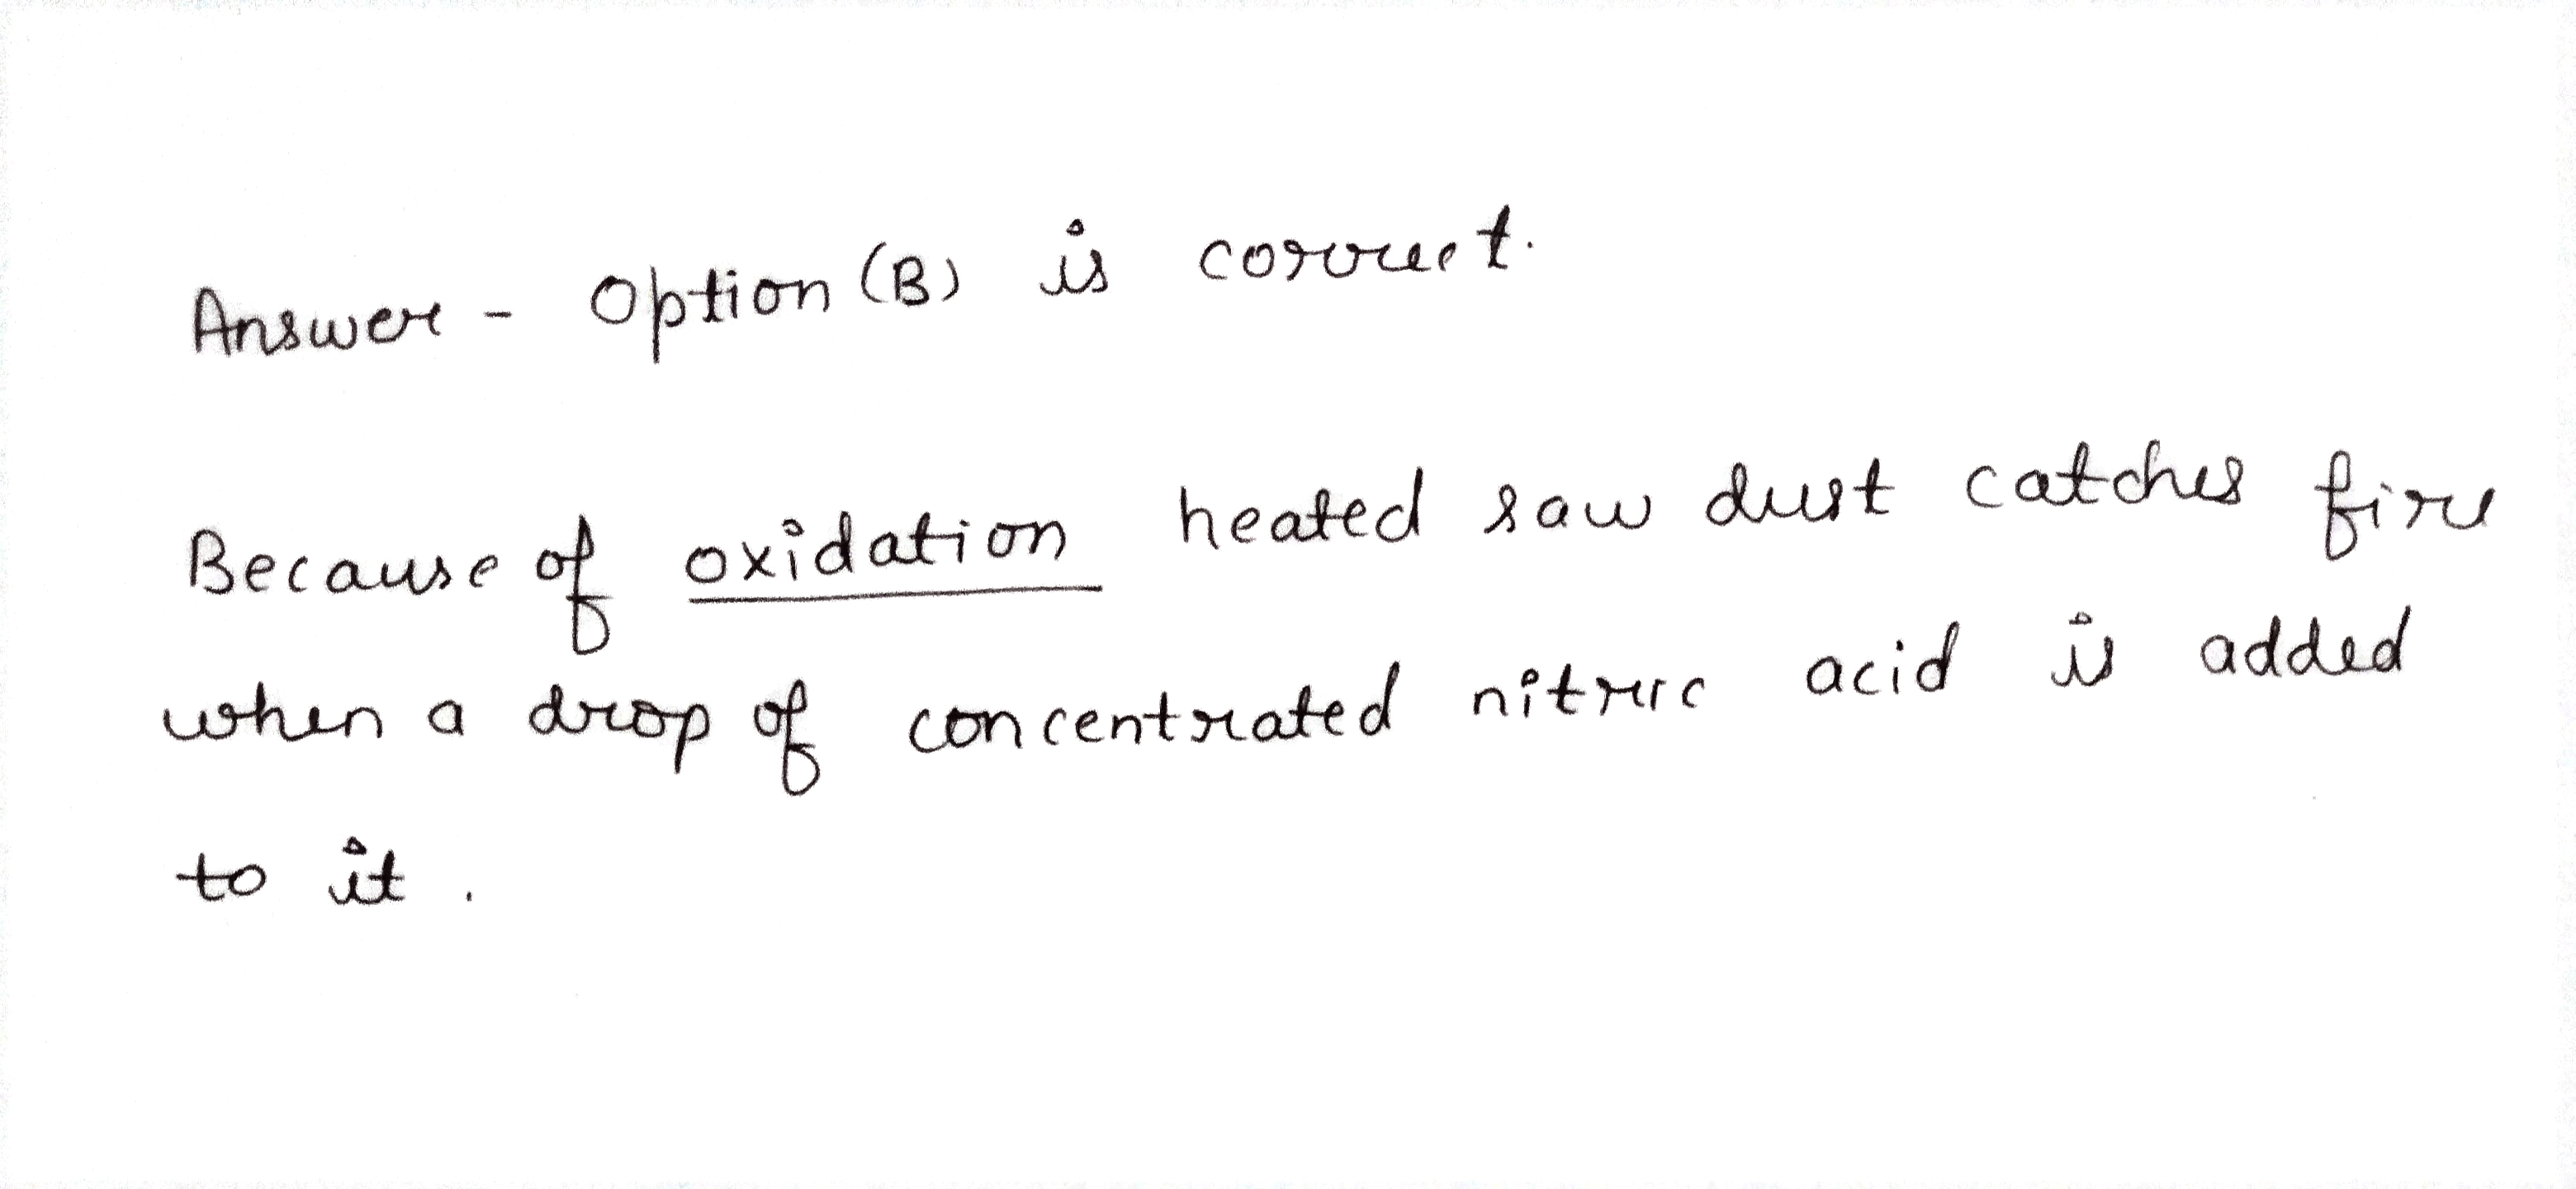 Answer - Option (B) is correct.
Because of oxidation heated saw dust catches fire
when a drop of concentrated nitric acid is added
to it .